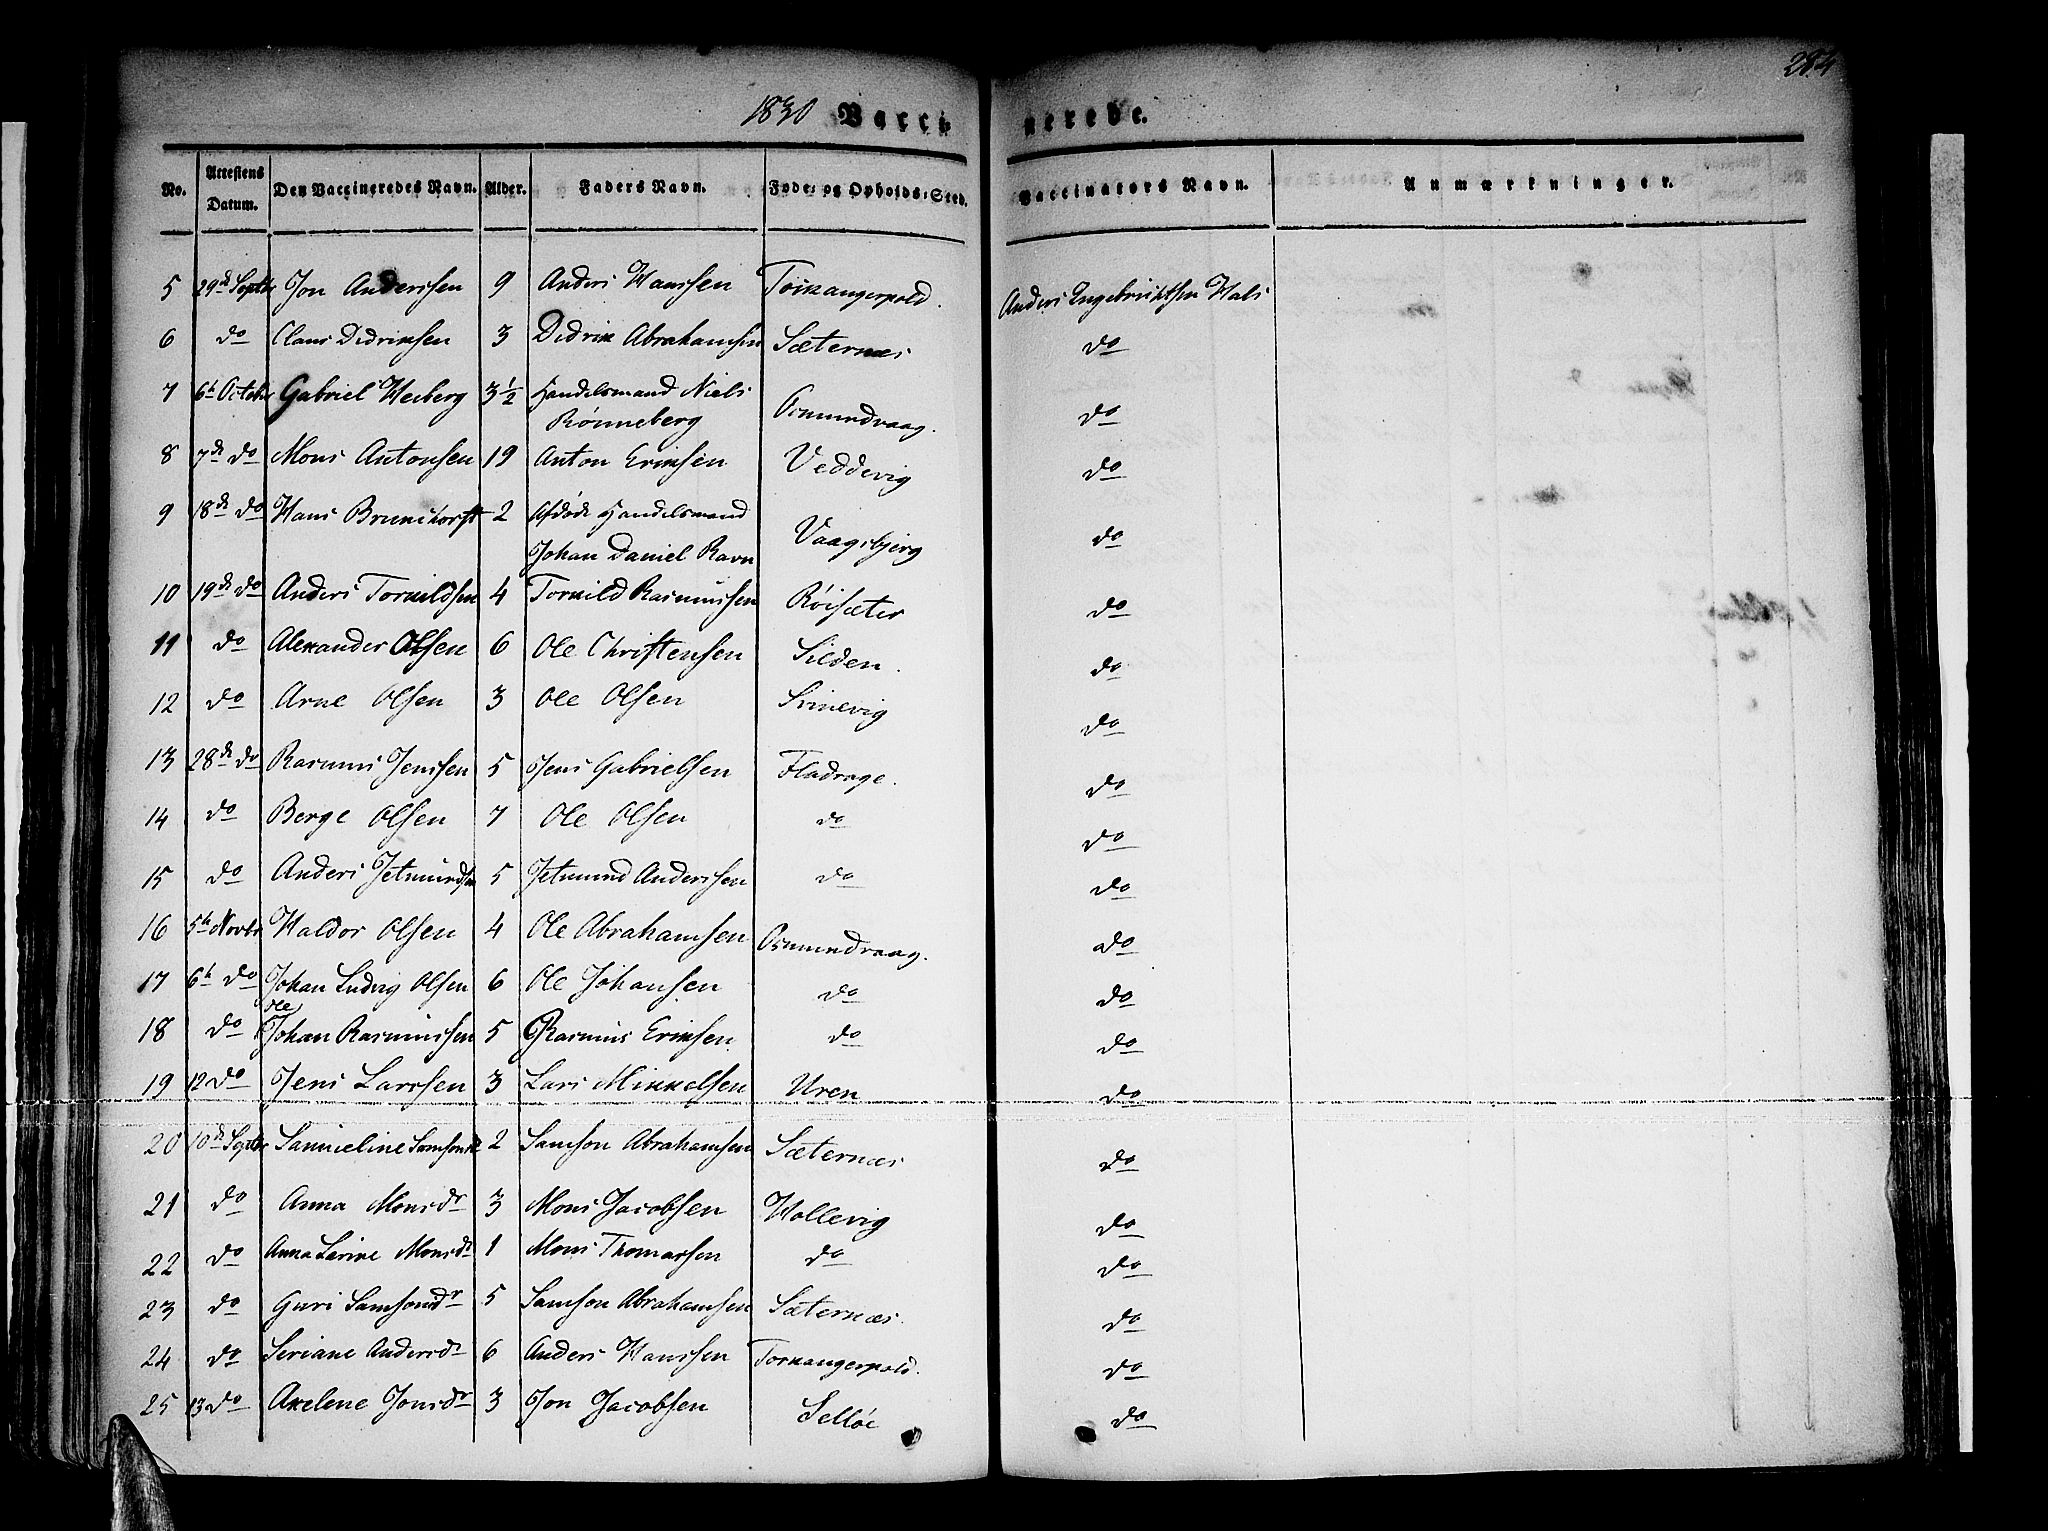 284
1830 Vaccinerede.
No. Attestens Datum. Den Vaccineredes Navn. Alder. Faders Navn. Føde- og Opholds-Sted. Vaccinators Navn. Anmærkninger.
5 29de Septbr Jon Anderssen 9 Anders Hanssen Anders Engebrichtsen Hals
6 do Claus Didriksen 3 Didrik Abrahamsen Sæternæs do
7 6te Octobr Gabriel Heiberg 3½ Handelsmand Niels
Rønneberg Osmundvaag. do
8 7de do Mons Antonsen 19 Anton Eriksen Veddevig do
9 18de do Hans Brunchorst 2 Afdøde Handelsmand
Johan Daniel Ravn Vaagsbjerg do
10 19de do Anders Torkildsen 4 Torkild Rasmussen Röisæter do
11 do Alexander Olsen 6 Ole Christensen Silden. do
12 do Arne Olsen 3 Ole Olsen do
13 28de do Rasmus Jenssen 5 Jens Gabrielsen do
14 do Berge Olsen 7 Ole Olsen do do
15 do Anders Jetmundsen 5 Jetmund Anderssen do do
16 5te Novbr Haldor Olsen 4 Ole Abrahamsen Osmundvaag. do
17 6te do Johan Ludvig Olsen 6 Ole Johansen do do
18 do Ole Johan Rasmussen 5 Rasmus Eriksen. do do
19 12 do Jens Larssen 3 Lars Mikkelsen Uren do
20 10de Septbr Samueline Samsondr 2 Samson Abrahamsen Sæternæs do
21 do Anna Monsdr 3 Mons Jacobsen Hollevig do
22 do Anna Serine Monsdr 1 Mons Thomassen do do
23 do Guri Samsonsdr 5 Samson Abrahamsen Sæternæs. do
24 do Seriane Andersdr 6 Anders Hanssen Torkangerpold. do
25 13 do Axelene Jonsdr 3 Jon Jacobsen Selløe do